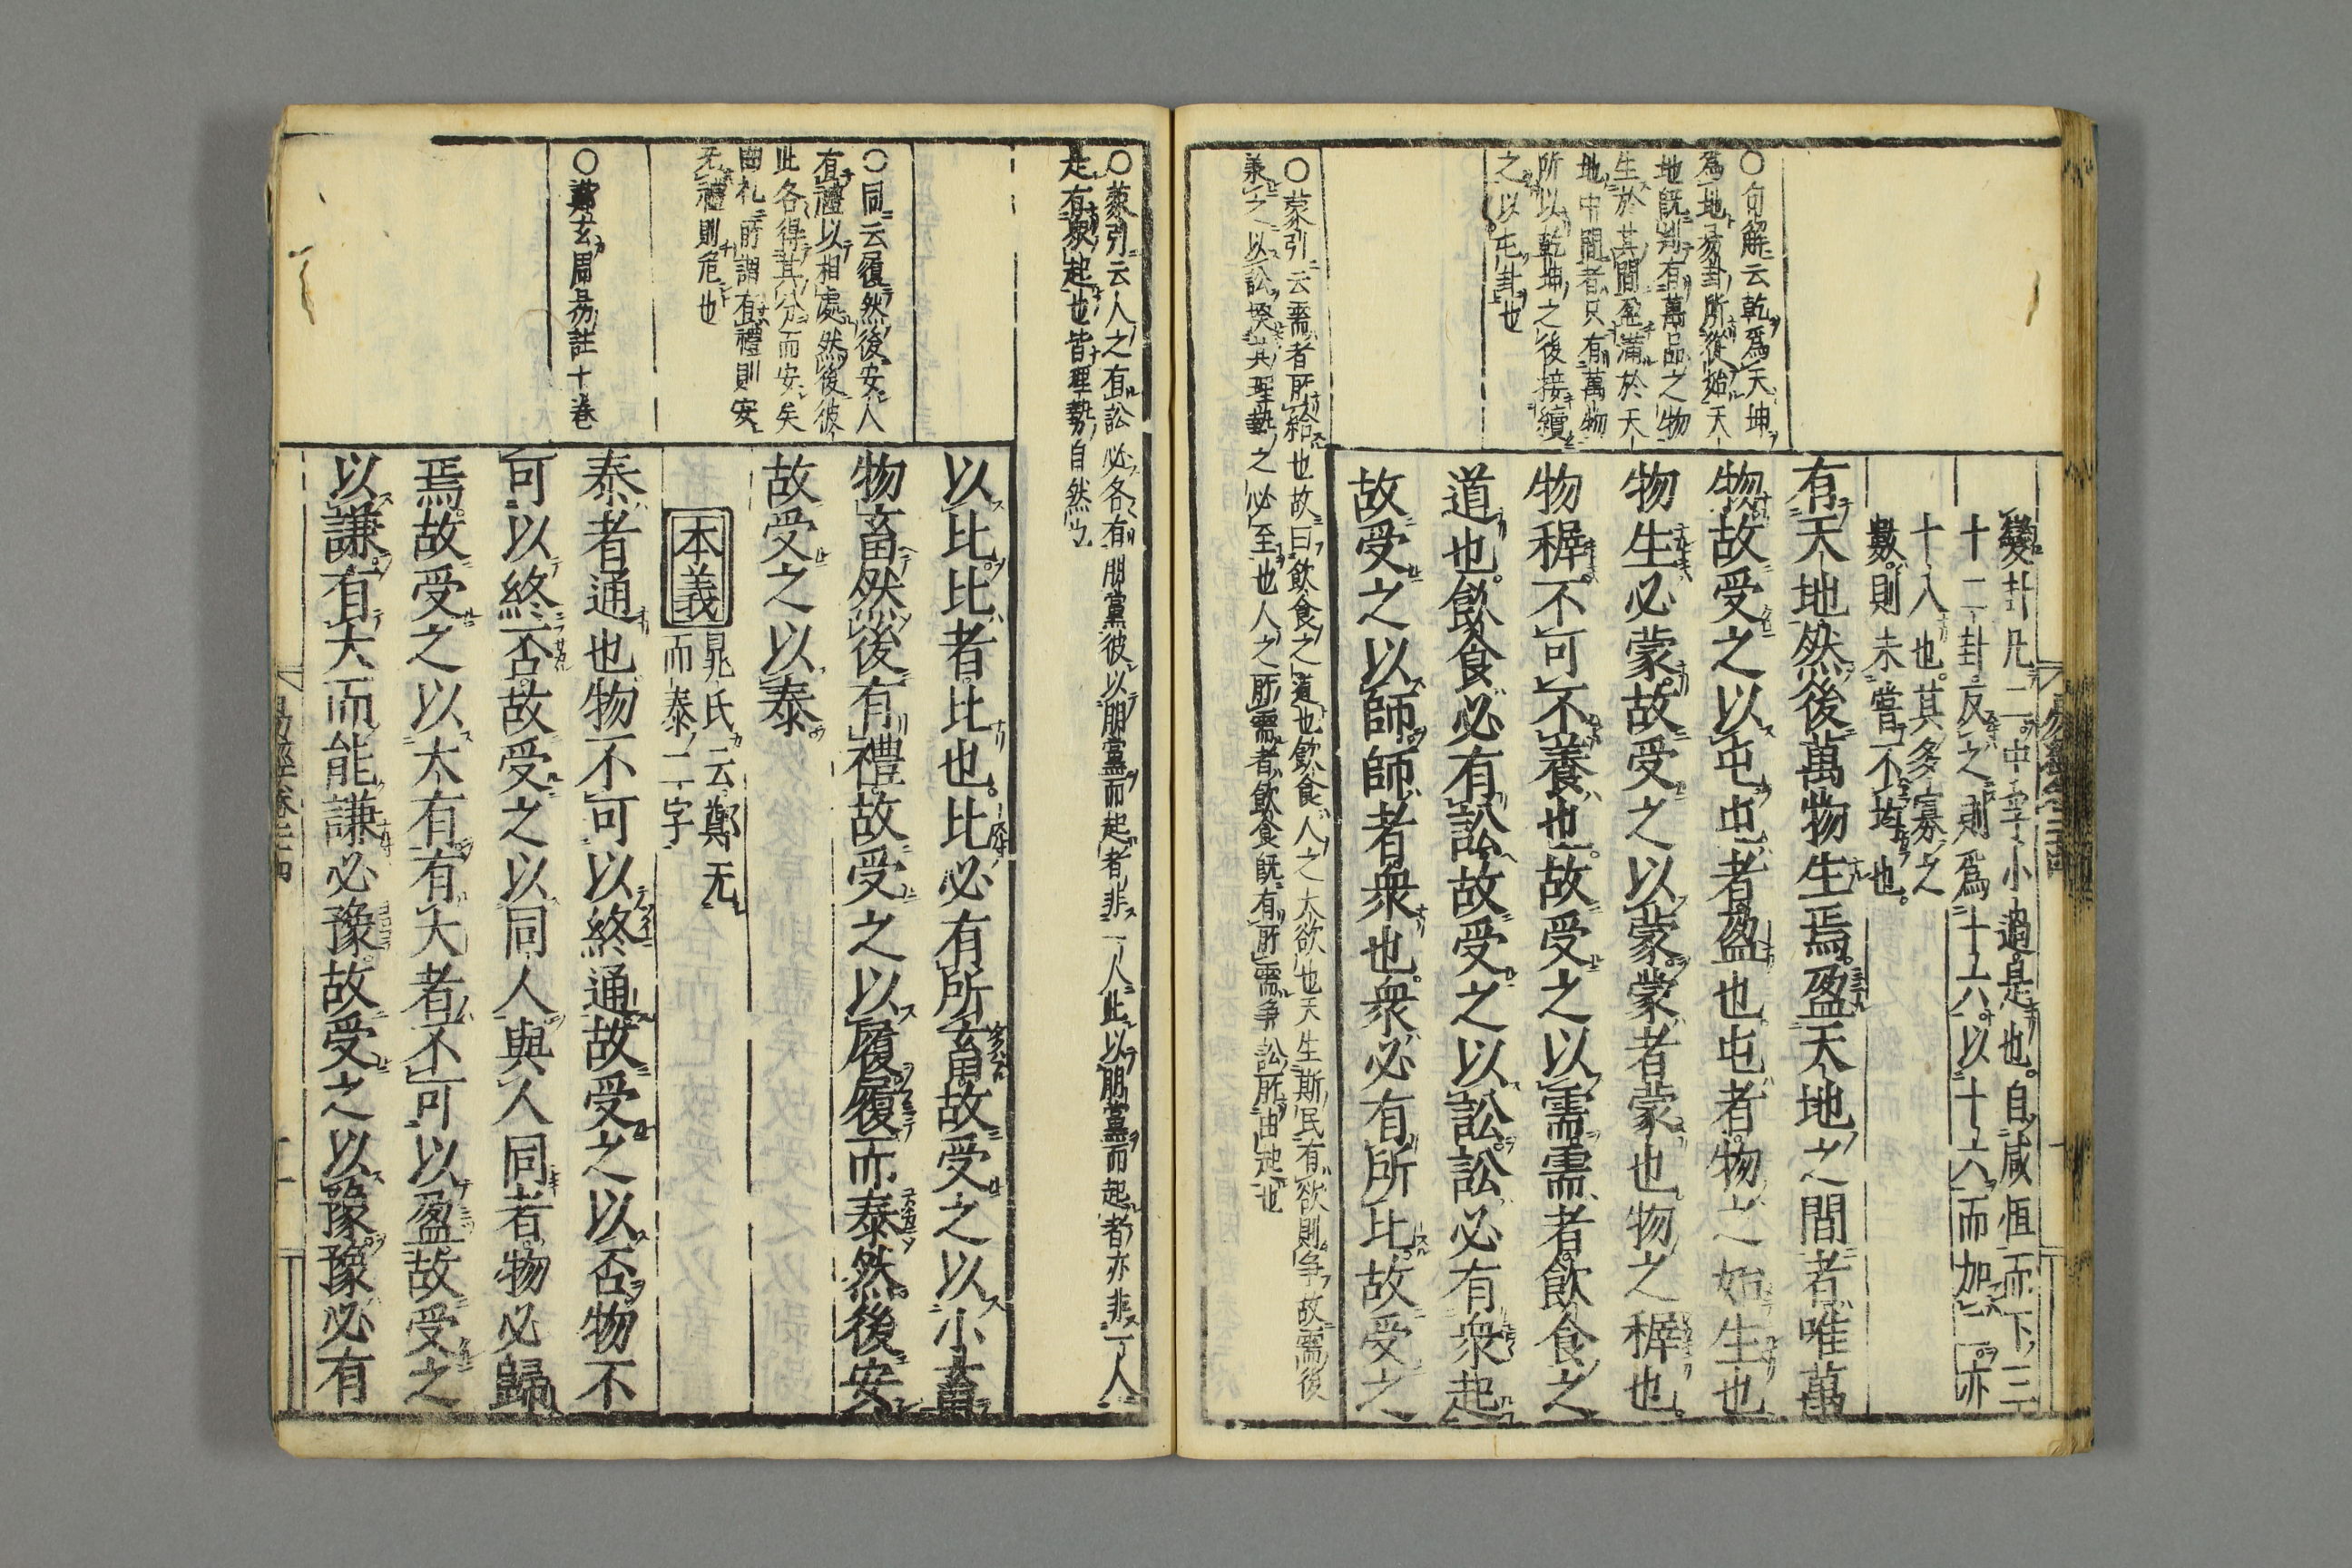 易經卷二十四
變卦凡二中孚小過是也。自咸恒而下三
十二卦反之則爲十六。以十六而加二亦
十八也。其多寡之
數。則未嘗不均也。
有天地然後萬物生焉。盈天地之間者唯萬
物故受之以屯屯者盈也屯者物之始生也
物生必蒙故受之以蒙蒙者蒙也物之穉也。
物穉不可不養也。故受之以需需者飲食之
道也。飲食必有訟故受之以訟訟必有衆起
故受之以師師者衆也。衆必有所比故受之
○句解云乾爲天坤
爲地易卦所從始天
地旣判有萬品之物
生於其間盈滿於天
地中間者只有萬物
所以乾坤之後接續
之以屯卦也
○蒙引云需者所給也故曰飲食之道也飲食人之大欲也天生斯民有欲則爭故需後
義之以訟奕其理勢之必至也人之所需者飲食旣有所需爭訟所由起也
○蒙引云人之有訟必各有朋黨彼以朋黨而起者非一人此以朋黨而起者亦非一人
是有衆起也皆理勢自然也
以比比者比也。比必有所畜故受之以小畜
物畜然後有禮故受之以履履而泰然後安
故受之以泰
本義
晁氏云鄭无
而泰二字
泰者通也物不可以終通故受之以否物不
可以終否故受之以同人與人同者物必歸
焉故受之以大有有大者不可以盈故受之
以謙有大而能謙必豫故受之以豫豫必有
○同云履然後安人
有禮以相處然後彼
此各得其分而安矣
曲礼所謂有禮則安
无禮則危也
○鄭玄周易註十卷
易經卷二十四